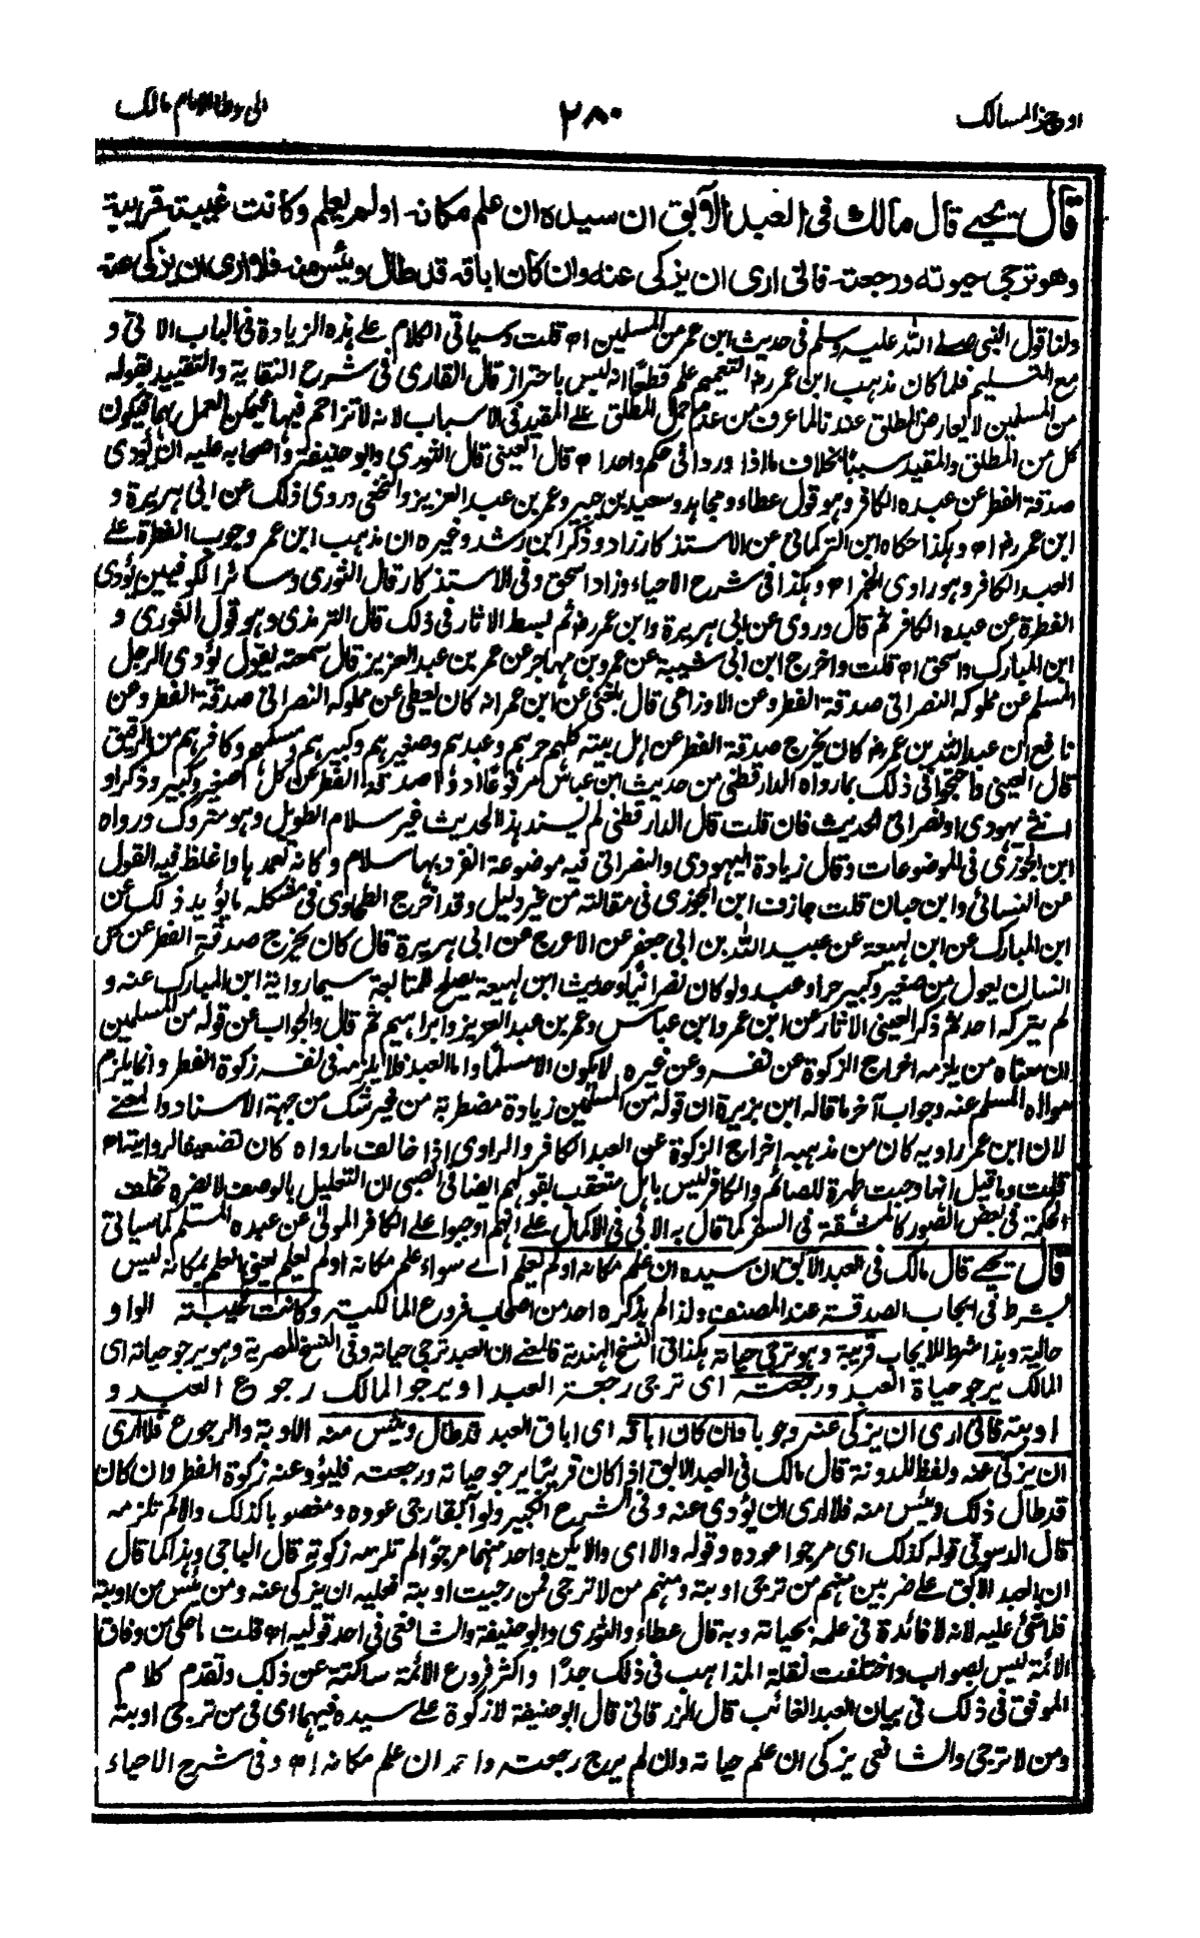 اوجز المسالك
٢٨٠
الى موطا الامام مالك
قال يحيے قال مالك فى العبد الآبق ان سيده ان علم مكانه او لم يعلم وكانت غيبته قريبة
وهو ترجى حيوته ورجعته فانى ارى ان يزكى عنه وان كان اباقه قد طال ويئس منه فلا ارى ان يزكى عنه
ولنا قول النبى صلے الله عليه وسلم فى حديث ابن عمر من المسلمين اھ قلت وسياتى الكلام علے هذه الزيادة فى الباب الاتى و
مع التسليم فلما كان مذهب ابن عمر رض التعميم علم قطعًا انه ليس باحتراز قال القارى فى شرح النقاية والتقييد بقوله
من المسلمين لا يعارض المطلق عندنا لما عرف من عدم حمل المطلق علے المقيد فى الاسباب لانه لا تزاحم فيها فيمكن العمل بهما فيكون
كل من المطلق والمقيد سببًا بخلاف ما اذا وردا فى حكم واحد اھ قال العينى قال الثورى وابو حنيفة واصحابه عليه ان يؤدى
صدقة الفطر عن عبده الكافر وهو قول عطاء ومجاهد وسعيد بن جبير وعمر بن عبد العزيز والنخعى وروى ذلك عن ابى هريرة و
ابن عمر رض اھ وهكذا حكاه ابن التركمانى عن الاستذكار زاد وذكر ابن رشد وغيره ان مذهب ابن عمر وجوب الفطرة علے
العبد الكافر وهو راوى الخبر اھ وهكذا فى شرح الاحياء وزاد اسحق وفى الاستذكار قال الثورى وسائر الكوفيين يؤدى
الفطرة عن عبده الكافر ثم قال وروى عن ابى هريرة وابن عمر رض ثم بسط الاثار فى ذلك قال الترمذى وهو قول الثورى و
ابن المبارك واسحق اھ قلت واخرج ابن ابى شيبة عن عمرو بن مهاجر عن عمر بن عبد العزيز قال سمعته يقول يؤدى الرجل
المسلم عن مملوكه النصرانى صدقة الفطر وعن الاوزاعى قال بلغنى عن ابن عمر انه كان يعطى عن مملوكه النصرانى صدقة الفطر وعن
نافع ان عبد الله بن عمر رض كان يخرج صدقة الفطر عن اهل بيته كلهم حرهم وعبدهم وصغيرهم وكبيرهم ومسلمهم وكافرهم من الرقيق
قال العينى واحتجوا فى ذلك بما رواه الدارقطنى من حديث ابن عباس مرفوعًا ادوا صدقة الفطر عن كل صغير وكبير وذكر او
انثے يهودى او نصرانى الحديث فان قلت قال الدارقطنى لم يسند هذا الحديث غير سلام الطويل وهو متروك ورواه
ابن الجوزى فى الموضوعات وقال زيادة اليهودى والنصرانى فيه موضوعة انفرد بها سلام وكانه تعمدها واغلظ فيه القول
عن النسائى وابن حبان قلت جازف ابن الجوزى فى مقالته من غير دليل وقد اخرج الطحاوى فى مشكله ما يؤيد ذلك عن
ابن المبارك عن ابن لهيعة عن عبيد الله بن ابى جعفر عن الاعرج عن ابى هريرة قال كان يخرج صدقة الفطر عن كل
انسان يعول من صغير وكبير حر او عبد ولو كان نصرانيًا وحديث ابن لهيعة يصلح للمتابعة سيما رواية ابن المبارك عنه و
لم يتركه احد ثم ذكر العينى الاثار عن ابن عمر وابن عباس وعمر بن عبد العزيز وابراهيم ثم قال والجواب عن قوله من المسلمين
ان معناه من يلزمه اخراج الزكوة عن نفسه وعن غيره لا يكون الا مسلمًا واما العبد فلا يلزمه فى نفسه زكوة الفطر وانما يلزم
مولاه المسلم عنه وجواب آخر ما قاله ابن بزيزة ان قوله من المسلمين زيادة مضطربة من غير شك من جهة الاسناد والمعنے
لان ابن عمر راويه كان من مذهبه اخراج الزكوة عن العبد الكافر والراوى اذا خالف ما رواه كان تضعيفا لروايته اھ
قلت وما قيل انها وجبت طهرة للصائم والكافر ليس باهل متعقب بقولهم ايضا فى الصبى ان التعليل بالوصف لا يضره تخلف
الحكمة فى بعض الصور كالمشقة فى السفر كما قال به الابى فى الاكمال على انهم اوجبوا على الكافر المولى عن عبده المسلم كما سياتى
قال يحيے قال مالك فى العبد الآبق ان سيده ان علم مكانه او لم يعلم اے سواء علم مكانه او لم يعلم يعنى العلم بمكانه ليس
بشرط فى ايجاب الصدقة عند المصنف ولذا لم يذكره احد من اصحاب فروع المالكية وكانت غيبته الواو
حالية وهذا شرط للايجاب قريبة وهو ترجى حياته هكذا فى النسخ الهندية فالمعنے ان العبد ترجى حياته وفى النسخ المصرية وهو يرجو حياته اى
المالك يرجو حياة العبد ورجعته اى ترجى رجعة العبد او يرجو المالك رجوع العبد و
اوبته فانى ارى ان يزكى عنه وجوبا وان كان اباقه اى اباق العبد قد طال ويئس منه الاوبة والرجوع فلا ارى
ان يزكى عنه ولفظ المدونة قال مالك فى العبد الابق اذا كان قريبًا يرجو حياته ورجعته فليؤد عنه زكوة الفطر وان كان
قد طال ذلك ويئس منه فلا ارى ان يؤدى عنه وفى الشرح الكبير ولو آبقا رجى عوده ومغصوبا كذلك والا لم تلزمه
قال الدسوقى قوله كذلك اى مرجوا عوده وقوله والا اى والا يكن واحد منهما مرجوًا لم تلزمه زكوته قال الباجى وهذا كما قال
ان العبد الآبق علے ضربين منهم من ترجى اوبته ومنهم من لا ترجى فمن رجيت اوبته فعليه ان يزكى عنه ومن يئس من اوبته
فلا شئ عليه لانه لا فائدة فى علمه بحياته وبه قال عطاء والثورى وابو حنيفة والشافعى فى احد قوليه اھ قلت ما حكى من وفاق
الائمة ليس بصواب واختلفت نقلة المذاهب فى ذلك جدًا واكثر فروع الائمة ساكتة عن ذلك وتقدم كلام
الموفق فى ذلك فى بيان العبد الغائب قال الزرقانى قال ابو حنيفة لا زكوة علے سيده فيهما اى فى من ترجى اوبته
ومن لا ترجى والشافعى يزكى ان علم حياته وان لم يرج رجعته واحمد ان علم مكانه اھ وفى شرح الاحياء